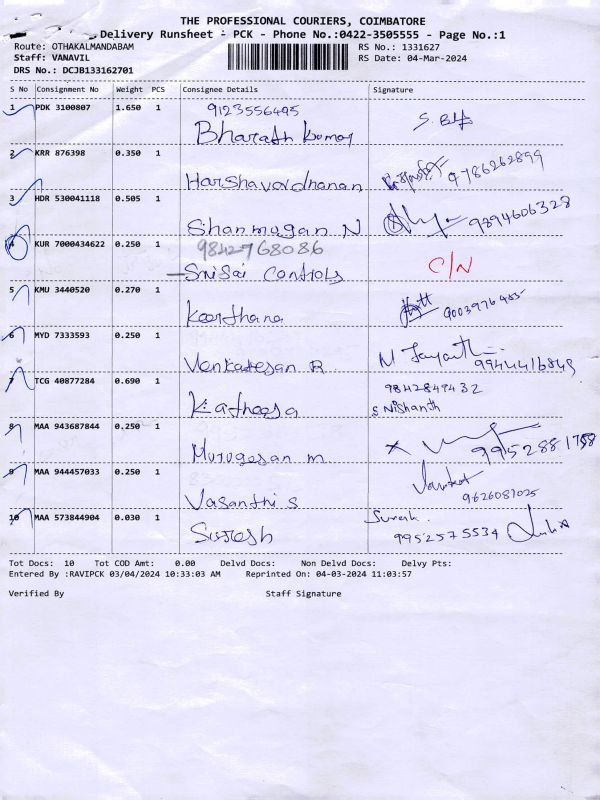 THE PROFESSIONAL COURIERS, COIMBATORE
Delivery Runsheet - PCK - Phone No.:0422-3505555 - Page No.:1
Route: OTHAKALMANDABAM RS No.: 1331627
Staff: VANAVIL RS Date: 04-Mar-2024
DRS No.: DCJB133162701
S No Consignment No Weight PCS Consignee Details Signature
1 PDK 3100807 1.650 1 9123556495
Bharath kumar S.
2 KRR 876398 0.350 1
Harshavardhanan 9786262899
3 HDR 530041118 0.505 1
Shanmugan N 9894606328
4 KUR 7000434622 0.250 1 9842768086
SriSai Controls C/N
5 KMU 3440520 0.270 1
Keerthana 9003976455
6 MYD 7333593 0.250 1
Venkatesan R N Jayanthi 9944416849
7 TCG 40877284 0.690 1 9842849432
S Nishanth
8 MAA 943687844 0.250 1
Murugesan m 9952881758
9 MAA 944457033 0.250 1
Vasanthi S 9626087025
10 MAA 573844904 0.030 1 Suresh.
Suresh 9952575534
Tot Docs: 10 Tot COD Amt: 0.00 Delvd Docs: Non Delvd Docs: Delvy Pts:
Entered By :RAVIPCK 03/04/2024 10:33:03 AM Reprinted On: 04-03-2024 11:03:57
Verified By Staff Signature